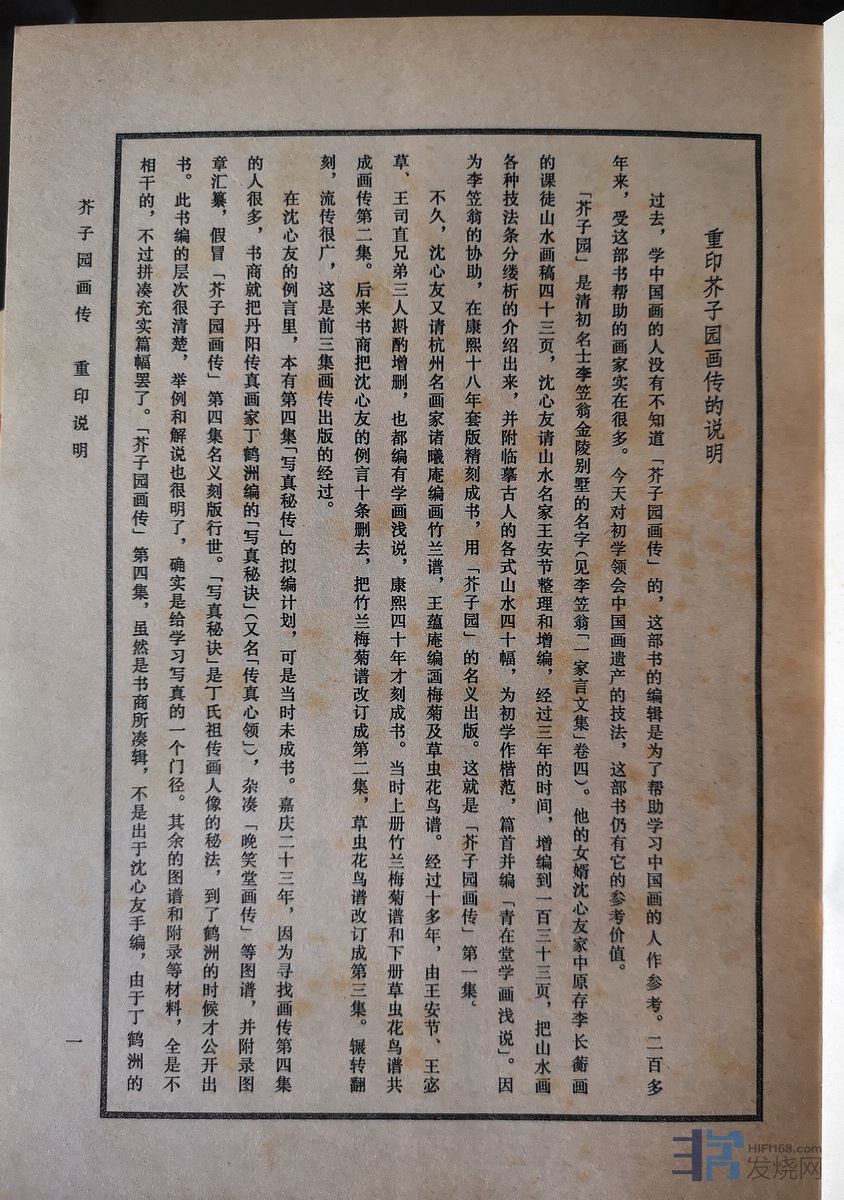 重印芥子园画传的说明
过去，学中国画的人没有不知道「芥子园画传」的，这部书的编辑是为了帮助学习中国画的人作参考。二百多
年来，受这部书帮助的画家实在很多。今天对初学领会中国画遗产的技法，这部书仍有它的参考价值。
「芥子园」是清初名士李笠翁金陵别墅的名字（见李笠翁「一家言文集」卷四）。他的女婿沈心友家中原存李长蘅画
的课徒山水画稿四十三页，沈心友请山水名家王安节整理和增编，经过三年的时间，增编到一百三十三页，把山水画
各种技法条分缕析的介绍出来，并附临摹古人的各式山水四十幅，为初学作楷范，篇首并编「青在堂学画浅说」。因
为李笠翁的协助，在康熙十八年套版精刻成书，用「芥子园」的名义出版。这就是「芥子园画传」第一集。
不久，沈心友又请杭州名画家诸曦庵编画竹兰谱，王蕴庵编画梅菊及草虫花鸟谱。经过十多年，由王安节、王宓
草、王司直兄弟三人斟酌增删，也都编有学画浅说，康熙四十年才刻成书。当时上册竹兰梅菊谱和下册草虫花鸟谱共
成画传第二集。后来书商把沈心友的例言十条删去，把竹兰梅菊谱改订成第二集，草虫花鸟谱改订成第三集。辗转翻
刻，流传很广，这是前三集画传出版的经过。
在沈心友的例言里，本有第四集「写真秘传」的拟编计划，可是当时未成书。嘉庆二十三年，因为寻找画传第四集
的人很多，书商就把丹阳传真画家丁鹤洲编的「写真秘诀」（又名「传真心领」），杂凑「晚笑堂画传」等图谱，并附录图
章汇纂，假冒「芥子园画传」第四集名义刻版行世。「写真秘诀」是丁氏祖传画人像的秘法，到了鹤洲的时候才公开出
书。此书编的层次很清楚，举例和解说也很明了，确实是给学习写真的一个门径。其余的图谱和附录等材料，全是不
相干的，不过拼凑充实篇幅罢了。「芥子园画传」第四集，虽然是书商所凑辑，不是出于沈心友手编，由于丁鹤洲的
芥子园画传 重印说明
一
HIFI168.com
发烧网